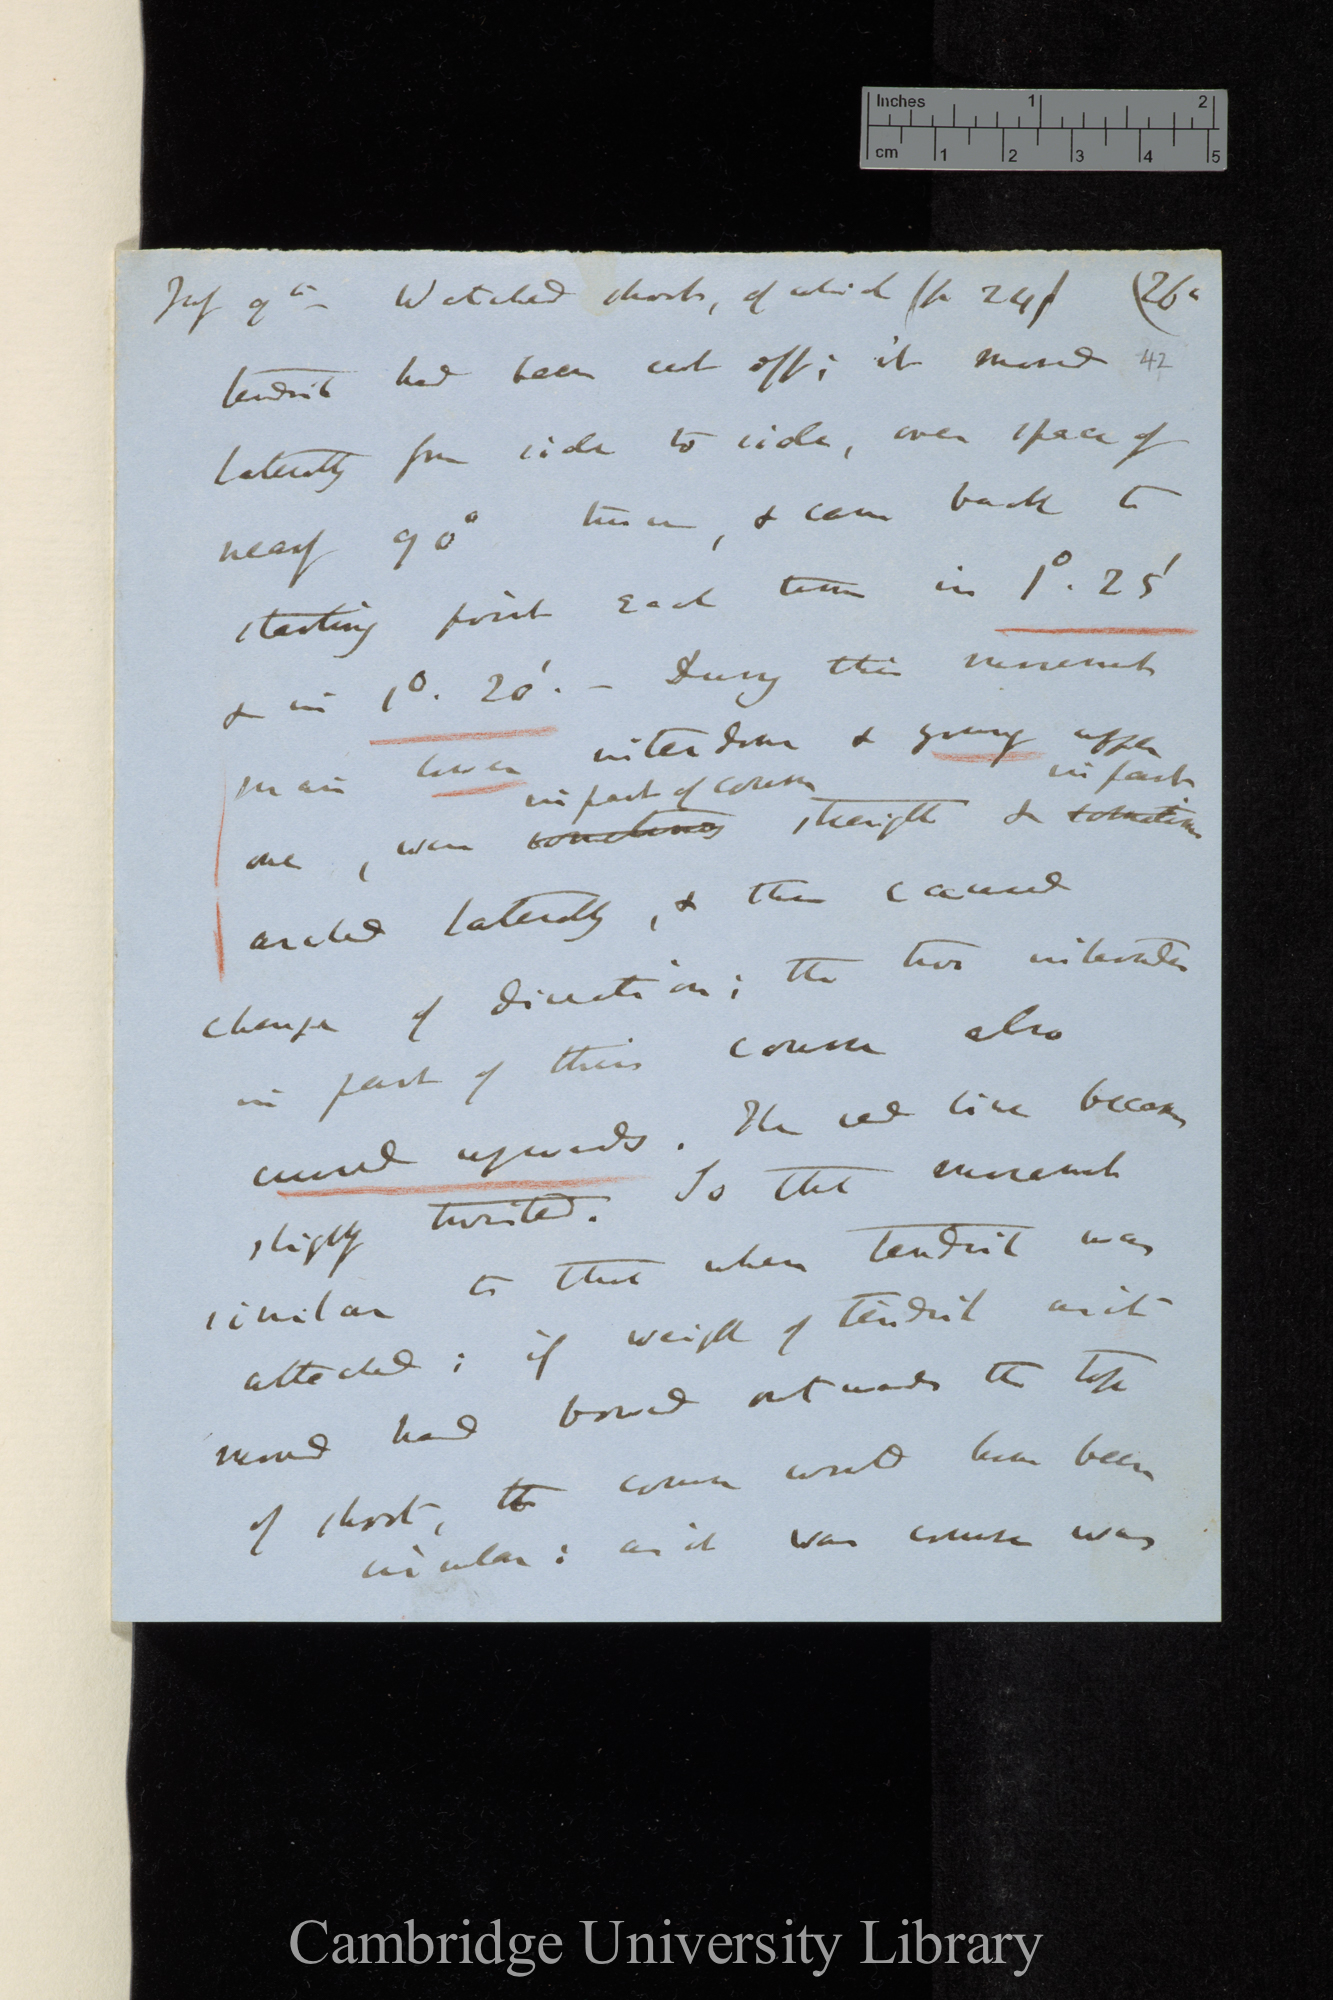 Inches 1 2
cm 1 2 3 4 5
July 9th — Watched shoot, of which (p 24) (26a
tendril had been cut off; it moved 42
laterally from side to side, over space of
nearly 90° twice, & came back to
starting point each time in 1°. 25'
& in 1°. 20'. — During this movement
main lower internode & young upper
in part of course in part
one, were sometimes straight & sometimes
arched laterally, & thus caused
change of direction; the two internodes
in part of their course also
curved upwards. The red line became
slightly twisted. So that movement
similar to that when tendril was
attached; if weight of tendril as it
moved had bowed outwards the top
of shoot, the course would have been
circular: as it was course was
Cambridge University Library